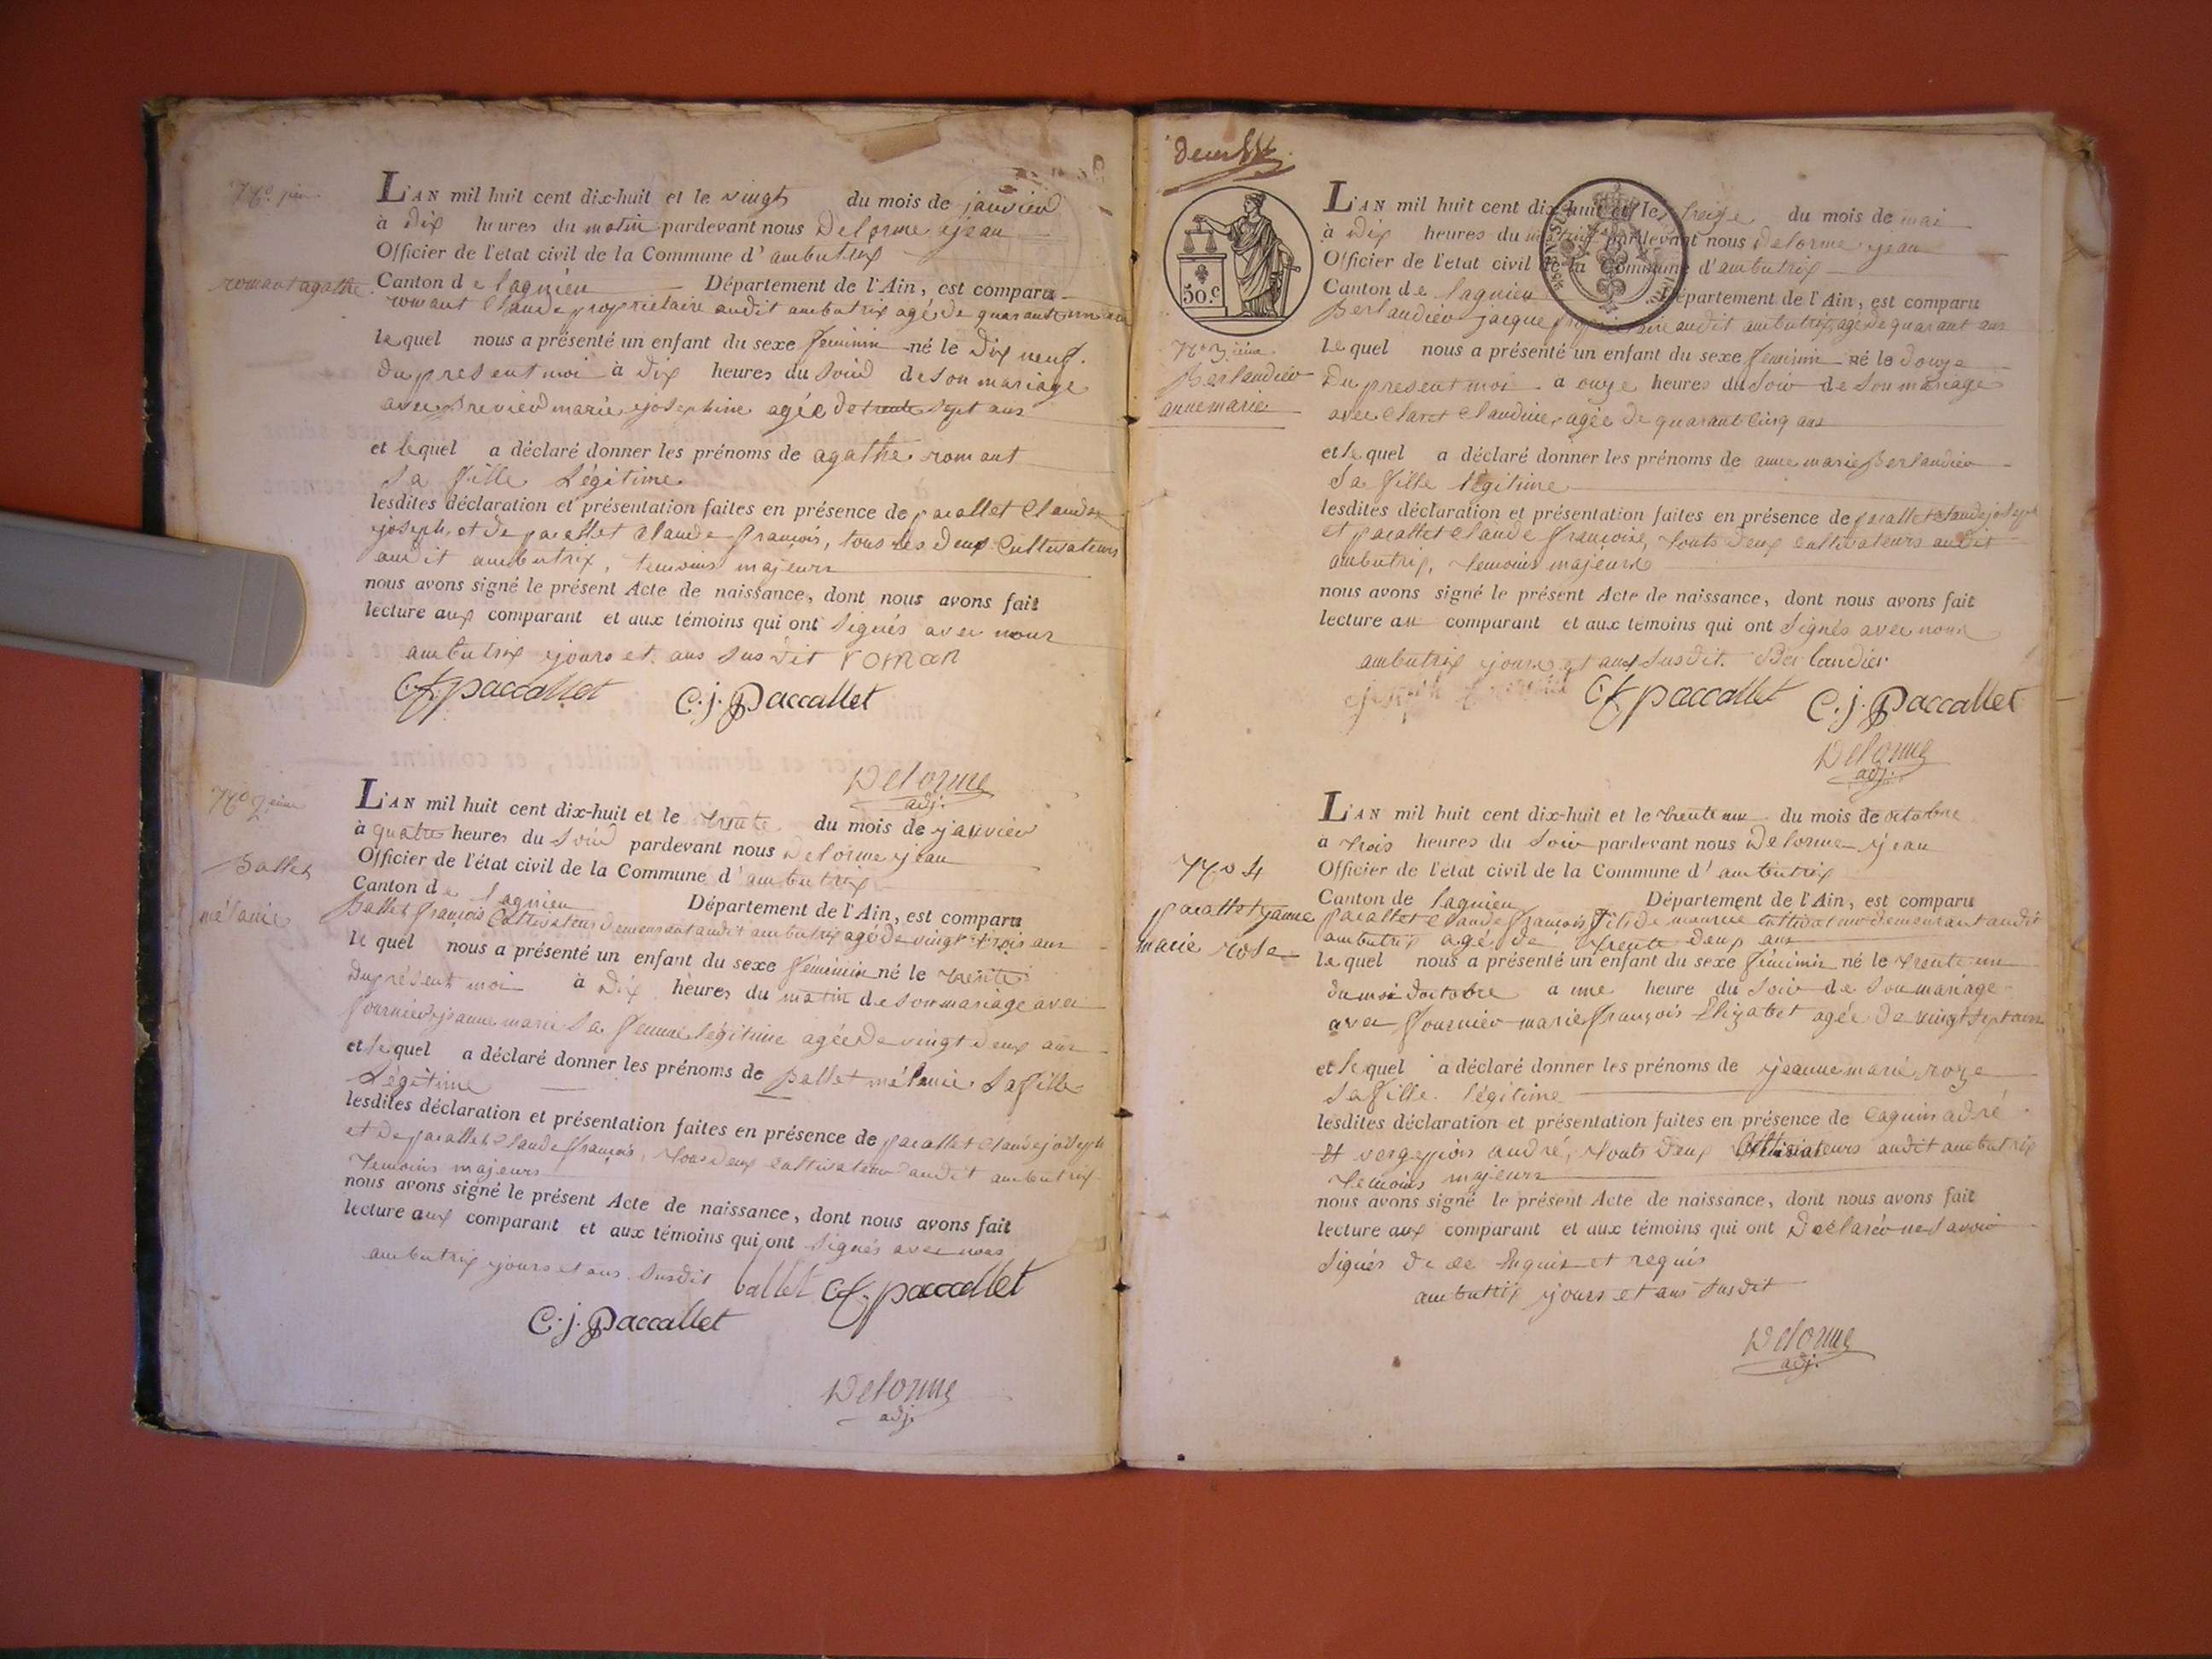 romant agathe
L'AN mil huit cent dix-huit et le vingt du mois de janvier
à dix heures du matin pardevant nous Delorme jean
Officier de l'etat civil de la Commune d'ambutrix
Canton de lagnieu Département de l'Ain, est comparu
romant Claude proprietaire audit ambutrix agé de quarante un ans
lequel nous a présenté un enfant du sexe feminin né le dix neuf
du present moi à dix heures du soir de son mariage
avec marie josephine agée de trente sept ans
et lequel a déclaré donner les prénoms de agathe romant
sa fille Légitime
lesdites déclaration et présentation faites en présence de pacallet Claude
joseph, et de pacallet Claude françois, tous les deux Cultivateurs
audit ambutrix, temoins majeurs
nous avons signé le présent Acte de naissance, dont nous avons fait
lecture aux comparant et aux témoins qui ont signés avec nous
ambutrix jours et ans susdit roman
C.f. paccallet C.j. Paccallet
Delorme
adj.
Ballet
mélanie
L'AN mil huit cent dix-huit et le trente du mois de janvier
à quatre heures du soir pardevant nous Delorme jean
Officier de l'état civil de la Commune d'ambutrix
Canton de lagnieu Département de l'Ain, est comparu
Ballet françois Cultivateur demeurant audit ambutrix agé de vingt trois ans
lequel nous a présenté un enfant du sexe féminin né le trente
du présent moi à dix heures du matin de son mariage avec
fournier jeanne marie sa femme légitime agée de vingt deux ans
et lequel a déclaré donner les prénoms de Ballet mélanie sa fille
Légitime
lesdites déclaration et présentation faites en présence de pacallet Claude joseph
et de pacallet Claude françois, tous deux cultivateur audit ambutrix
temoins majeurs
nous avons signé le présent Acte de naissance, dont nous avons fait
lecture aux comparant et aux témoins qui ont signés avec nous
ambutrix jours et ans susdit ballet C.f. paccallet
C.j. Paccallet
Delorme
adj.
50.c
Berlandier
anne marie
L'AN mil huit cent dix-huit et le treize du mois de mai
à dix heures du matin pardevant nous Delorme jean
Officier de l'etat civil de la Commune d'ambutrix
Canton de lagnieu Département de l'Ain, est comparu
Berlandier jacque proprietaire audit ambutrix, agé de quarant ans
lequel nous a présenté un enfant du sexe feminin né le douze
du present moi a onze heures du soir de son mariage
avec Claret Claudine, agée de quarant Cinq ans
et lequel a déclaré donner les prénoms de anne marie Berlandier
sa fille légitime
lesdites déclaration et présentation faites en présence de pacallet Claude joseph
et pacallet Claude françoise, touts deux cultivateurs audit
ambutrix, temoins majeurs
nous avons signé le présent Acte de naissance, dont nous avons fait
lecture au comparant et aux témoins qui ont signés avec nous
ambutrix jours et ans susdit. Berlandier
C.f. paccallet C.j. Paccallet
Delorme
adj.
4
pacallet jeanne
marie rose
L'AN mil huit cent dix-huit et le trente un du mois de octobre
à trois heures du soir pardevant nous Delorme jean
Officier de l'état civil de la Commune d'ambutrix
Canton de lagnieu Département de l'Ain, est comparu
pacallet Claude françois fils de maurice cultivateur demeurant audit
ambutrix agé de trente deux ans
lequel nous a présenté un enfant du sexe féminin né le trente un
du moi doctobre a une heure du soir de son mariage
avec fournier marie françois Elizabet agée de vingt sept ans
et lequel a déclaré donner les prénoms de jeanne marie roze
sa fille légitime
lesdites déclaration et présentation faites en présence de Caquin adré
et andré, touts deux Cultivateurs audit ambutrix
temoins majeurs
nous avons signé le présent Acte de naissance, dont nous avons fait
lecture aux comparant et aux témoins qui ont declaré ne savoir
signés de ce Enquis et requis
ambutrix jours et ans susdit
Delorme
adj.